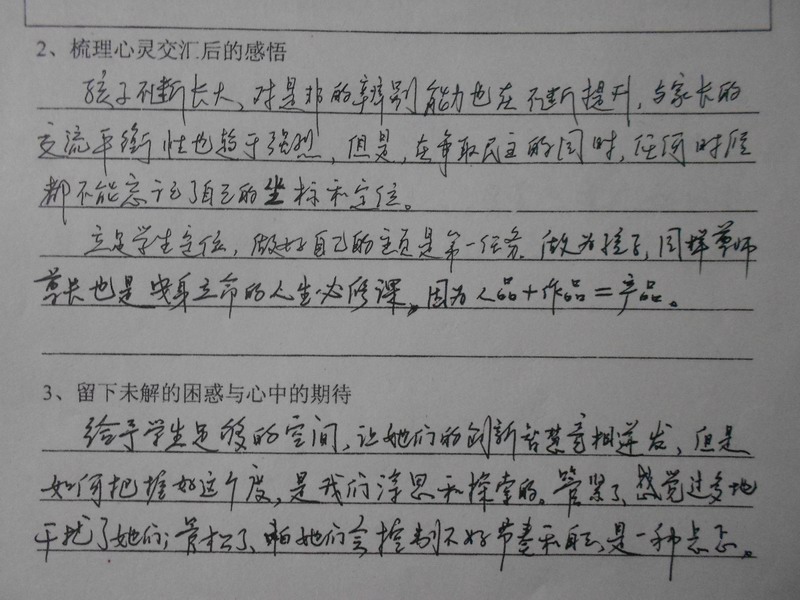 2、梳理心灵交汇后的感悟
孩子不断长大，对是非的辩别能力也在不断提升，与家长的
交流平衡性也趋于强烈，但是，在争取民主的同时，任何时候
都不能忘记了自己的坐标和定位。
立足学生定位，做好自己的主页是第一任务。做为孩子，同样尊师
尊长也是安身立命的人生必修课。因为人品+作品=产品。
3、留下未解的困惑与心中的期待
给予学生足够的空间，让她们的创新智慧竞相迸发，但是
如何把握好这个度，是我们深思和探索的。管紧了，感觉过多地
干扰了她们；管松了，怕她们会控制不好节奏和自己，是一种忐忑。